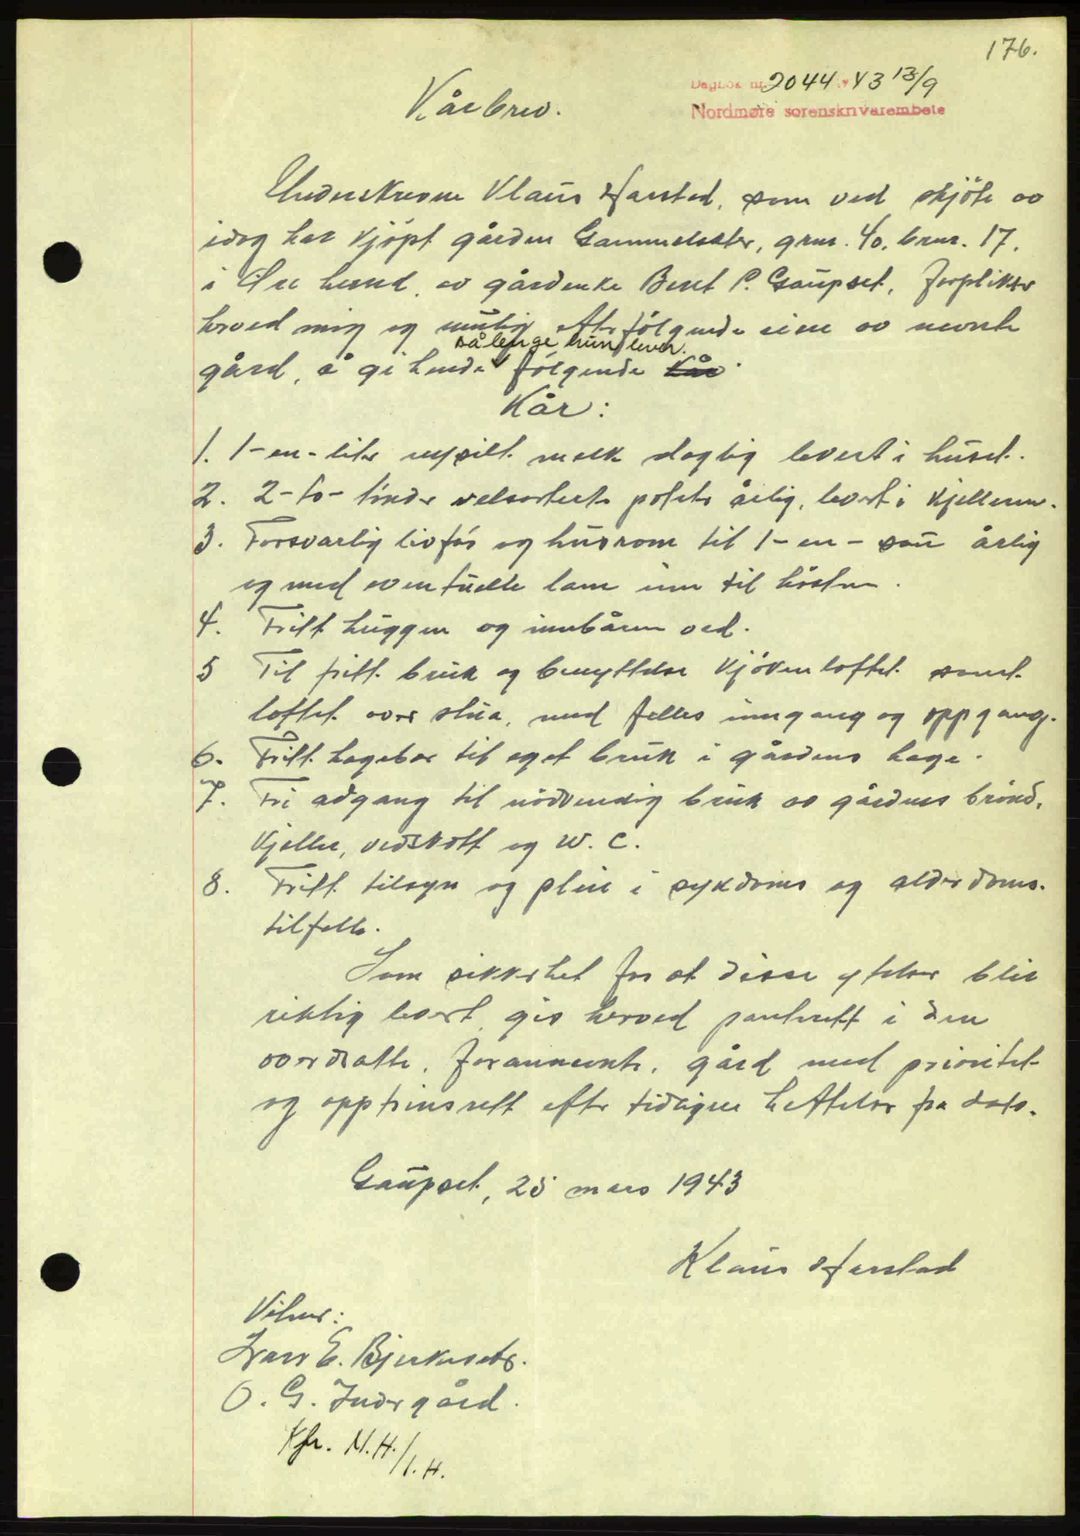 176.
Dagbok nr. 2044 43 13/9
Nordmøre sorenskriverembete
Kårbrev.
Underskrevne Klaus Harstad, som ved skjöte av
idag har kjöpt gården Gammelsæter, grnr. 40, brnr. 17,
i Öre herred, av gårdenke Beret P. Gaupset, forplikter
herved mig og mulig efterfölgende eiere av nevnte
sålenge hun lever.
gård, å gi hende fölgende kår
Kår:
1. 1-en- liter nysilt melk daglig levert i huset.
2. 2-to- tönder velsorterte poteter årlig, levert i kjelleren.
3. Forsvarlig livfór og husrom til 1-en- sau årlig
og med eventuelle lam inn til hösten.
4. Fritt huggen og innbåren ved.
5 Til fritt bruk og benyttelse kjökenloftet samt
loftet over stua, med felles inngang og oppgang.
6. Fritt hagebær til eget bruk i gårdens hage.
7. Fri adgang til nödvendig bruk av gårdens brönd,
kjeller, vedskott og W. C.
8. Fritt tilsyn og pleie i sykdoms og alderdoms-
tilfelle.
Som sikkerhet for at disse ytelser blir
riktig levert, gis herved panterett i den
overdratte, forannevnte, gård med prioritet
og opptrinsrett efter tidligere heftelser fra dato.
Gaupset, 25 mars 1943
Klaus Harstad
Vitner:
Ivar E. Bjerkeseter.
O. G. Indergård.
Kfr. N.H./I.H.